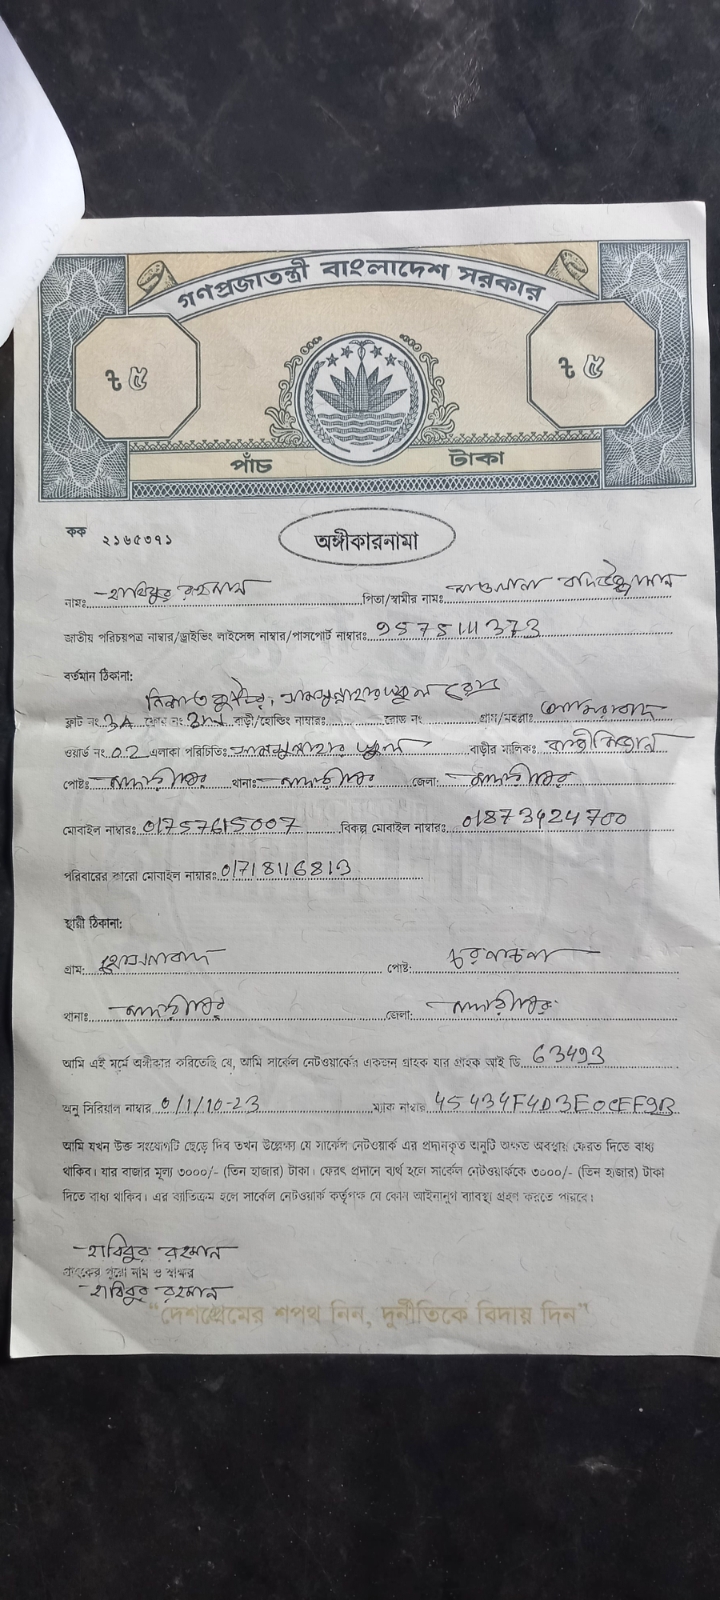 গণপ্রজাতন্ত্রী বাংলাদেশ সরকার
৳ ৫
৳ ৫
পাঁচ টাকা
কক ২১৬৫৩৭১
অঙ্গীকারনামা
নামঃ হাবিবুর রহমান পিতা/স্বামীর নামঃ মাওলানা
জাতীয় পরিচয়পত্র নাম্বার/ড্রাইভিং লাইসেন্স নাম্বার/পাসপোর্ট নাম্বারঃ 9575111373
বর্তমান ঠিকানা:
ফ্লাট নং 3A ফ্লোর নং 2nd বাড়ী/হোল্ডিং নাম্বারঃ রোড নং গ্রাম/মহল্লাঃ
ওয়ার্ড নং 02 এলাকা পরিচিতিঃ বাড়ীর মালিকঃ
পোষ্টঃ মাদারীপুর থানাঃ মাদারীপুর জেলা: মাদারীপুর
মোবাইল নাম্বারঃ 01757615007 বিকল্প মোবাইল নাম্বারঃ 01873424700
পরিবারের কারো মোবাইল নাম্বারঃ 01718116813
স্থায়ী ঠিকানা:
গ্রাম: পোষ্ট:
থানাঃ মাদারীপুর জেলা: মাদারীপুর
আমি এই মর্মে অঙ্গীকার করিতেছি যে, আমি সার্কেল নেটওয়ার্কের একজন গ্রাহক যার গ্রাহক আই ডি 63493
অনু সিরিয়াল নাম্বার 0/1/10-23 ম্যাক নাম্বার 45434F4D3E0CEF9B
আমি যখন উক্ত সংযোগটি ছেড়ে দিব তখন উল্লেখ্য যে সার্কেল নেটওয়ার্ক এর প্রদানকৃত অনুটি অক্ষত অবস্থায় ফেরত দিতে বাধ্য
থাকিব। যার বাজার মূল্য ৩০০০/- (তিন হাজার) টাকা। ফেরৎ প্রদানে ব্যর্থ হলে সার্কেল নেটওয়ার্ককে ৩০০০/- (তিন হাজার) টাকা
দিতে বাধ্য থাকিব। এর ব্যতিক্রম হলে সার্কেল নেটওয়ার্ক কর্তৃপক্ষ যে কোন আইনানুগ ব্যবস্থা গ্রহণ করতে পারবে।
হাবিবুর রহমান
গ্রাহকের পুরো নাম ও স্বাক্ষর
হাবিবুর রহমান
"দেশপ্রেমের শপথ নিন, দুর্নীতিকে বিদায় দিন"